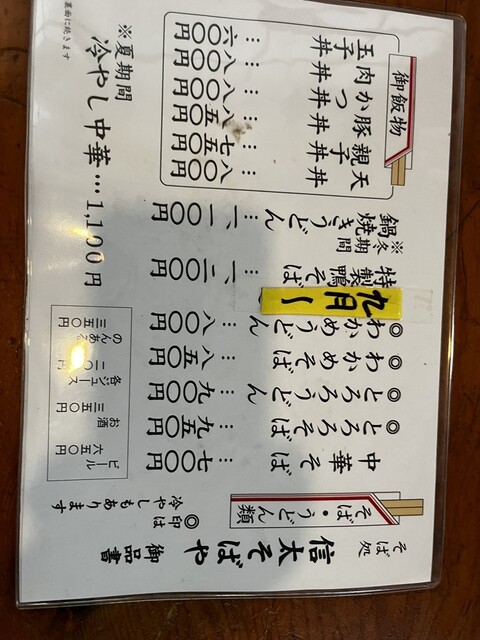 そば処
信太そばや
御品書
◎印は
冷やしもあります
そば・うどん類
中華そば 七〇〇円
◎とろろそば … 九五〇円
◎とろろうどん … 九〇〇円
◎わかめそば … 八五〇円
◎わかめうどん … 八〇〇円
九月〜
特製鴨そば … 一、二〇〇円
※冬期間
鍋焼きうどん … 一、一〇〇円
ビール 六五〇円
お酒 三五〇円
各ジュース
のんある 三五〇円
御飯物
天丼 … 八〇〇円
親子丼 … 七五〇円
豚丼 … 八五〇円
かつ丼 … 八〇〇円
肉丼 … 八〇〇円
玉子丼 … 六〇〇円
※夏期間
冷やし中華…1,100円
裏面に続きます